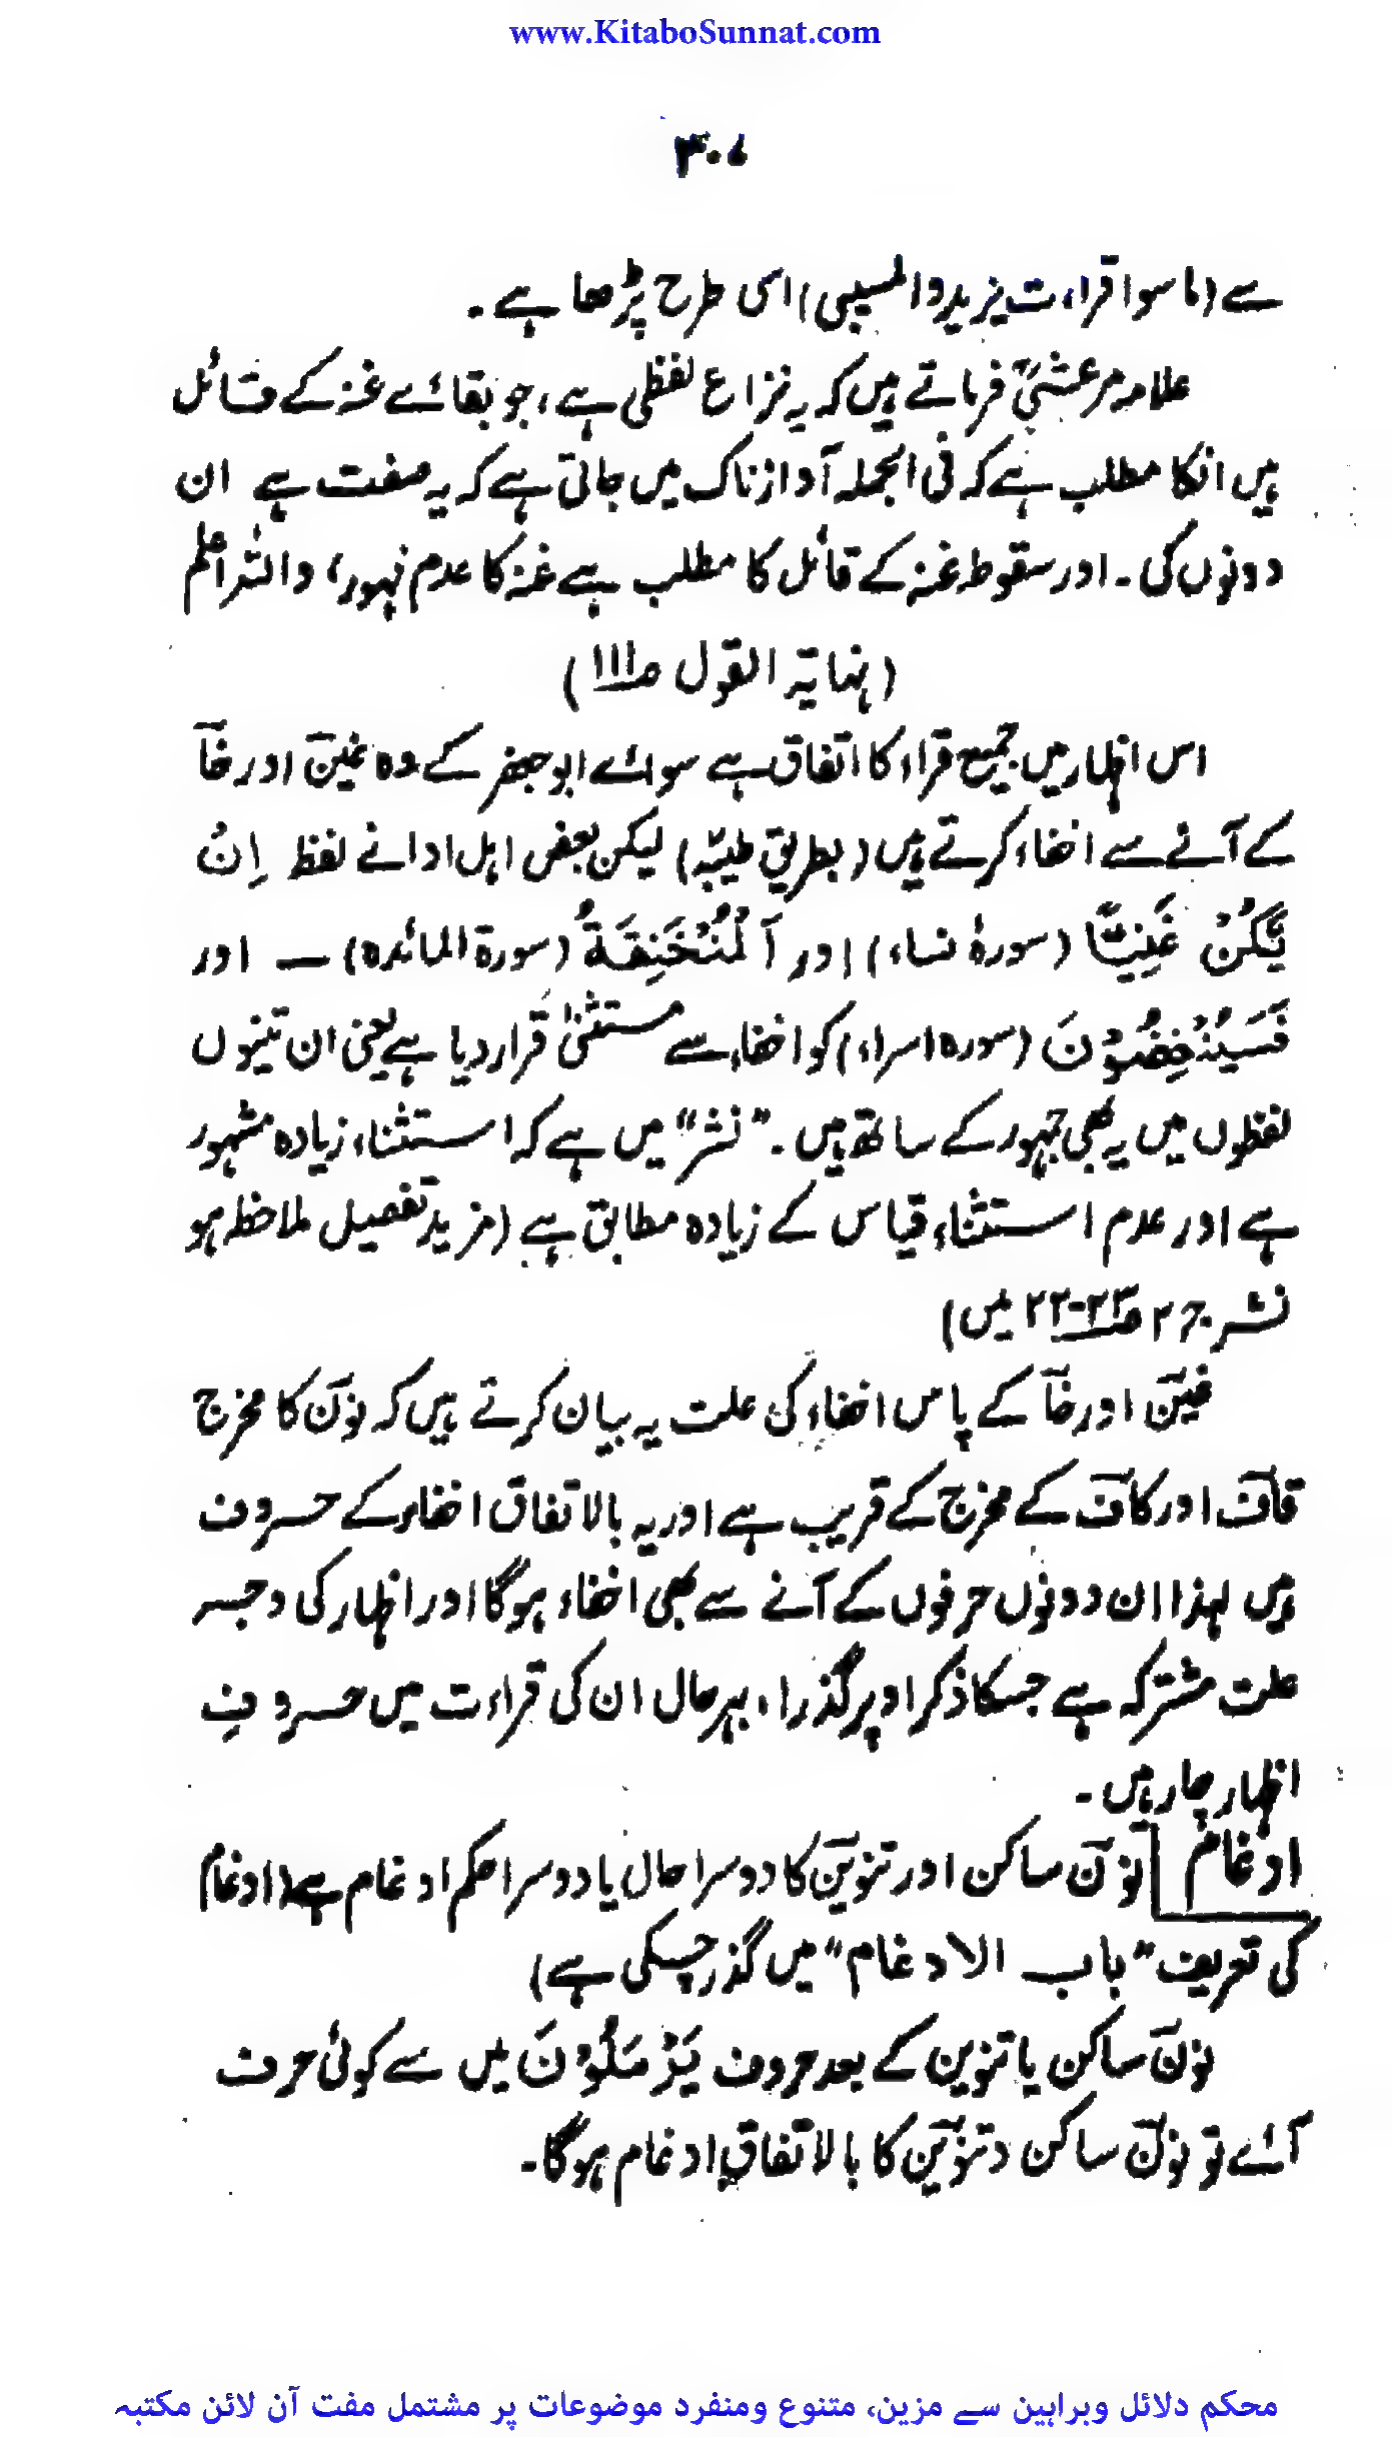 www.KitaboSunnat.com
۳۰۷
سے (ما سوا قراءت یزید والمسیبی) اسی طرح پڑھا ہے۔
علامہ مرعشیؒ فرماتے ہیں کہ یہ نزاع لفظی ہے، جو بقائے غنہ کے قائل
ہیں انکا مطلب ہے کہ فی الجملہ آواز ناک میں جاتی ہے کہ یہ صفت ہے ان
دونوں کی۔ اور سقوط غنہ کے قائل کا مطلب ہے غنہ کا عدم ظہور، واللہ اعلم
(نہایۃ القول ص۱۱۱)
اس اظہار میں جمیع قراء کا اتفاق ہے سوائے ابوجعفر کے وہ غینؔ اور خآ
کے آنے سے اخفاء کرتے ہیں (بطریق طیبہ) لیکن بعض اہل ادا نے لفظ اِنْ
یَّکُنْ غَنِیًّا (سورۂ نساء) اور اَلْمُنْخَنِقَةُ (سورۃ المائدہ) — اور
فَسَیُنْغِضُوْنَ (سورہ اسراء) کو اخفاء سے مستثنیٰ قرار دیا ہے یعنی ان تینوں
لفظوں میں یہ بھی جمہور کے ساتھ ہیں۔ "نشر" میں ہے کہ استثناء زیادہ مشہور
ہے اور عدم استثناء قیاس کے زیادہ مطابق ہے (مزید تفصیل ملاحظہ ہو
نشر ج۲ ص۲۲-۲۳ میں)
غینؔ اور خآ کے پاس اخفاء کی علت یہ بیان کرتے ہیں کہ نونؔ کا مخرج
قافؔ اور کافؔ کے مخرج کے قریب ہے اور یہ بالاتفاق اخفاء کے حروف
ہیں لہذا ان دونوں حرفوں کے آنے سے بھی اخفاء ہوگا اور اظہار کی وجہ
علت مشترکہ ہے جسکا ذکر اوپر گذرا، بہرحال ان کی قراءت میں حروفِ
اظہار چار ہیں۔
ادغام نونؔ ساکن اور تنوینؔ کا دوسرا حال یا دوسرا حکم ادغام ہے (ادغام
کی تعریف "باب الادغام" میں گذر چکی ہے)
نونؔ ساکن یا تنوین کے بعد حروف یَرْمَلُوْنَ میں سے کوئی حرف
آئے تو نونؔ ساکن و تنوینؔ کا بالاتفاق ادغام ہوگا۔
محکم دلائل وبراہین سے مزین، متنوع ومنفرد موضوعات پر مشتمل مفت آن لائن مکتبہ